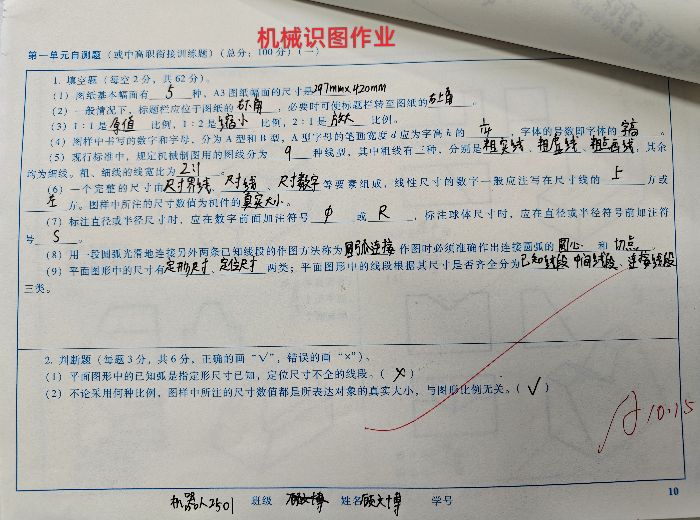 机械识图作业
第一单元自测题（或中高职衔接训练题）（总分：100分）（一）
1. 填空题（每空2分，共62分）。
（1）图纸基本幅面有 5 种，A3图纸幅面的尺寸是297mm×420mm
（2）一般情况下，标题栏应位于图纸的右下角，必要时可使标题栏转至图纸的右上角。
（3）1∶1是原值比例，1∶2是缩小比例，2∶1是放大比例。
（4）图样中书写的数字和字母，分为A型和B型，A型字母的笔画宽度d应为字高h的 1/14，字体的号数即字体的字高。
（5）现行标准中，规定机械制图用的图线分为 9 种线型，其中粗线有三种，分别是粗实线、粗虚线、粗点画线，其余
均为细线。粗、细线的线宽比为 2:1。
（6）一个完整的尺寸由尺寸界线、尺寸线、尺寸数字等要素组成，线性尺寸的数字一般应注写在尺寸线的 上 方或
左 方。图样中所注的尺寸数值为机件的真实大小。
（7）标注直径或半径尺寸时，应在数字前面加注符号 φ 或 R，标注球体尺寸时，应在直径或半径符号前加注符
号 S。
（8）用一段圆弧光滑地连接另外两条已知线段的作图方法称为圆弧连接作图时必须准确作出连接圆弧的圆心和切点。
（9）平面图形中的尺寸有定形尺寸、定位尺寸两类；平面图形中的线段根据其尺寸是否齐全分为已知线段 中间线段、连接线段
三类。
2. 判断题（每题3分，共6分，正确的画“√”，错误的画“×”）。
（1）平面图形中的已知弧是指定形尺寸已知，定位尺寸不全的线段。（×）
（2）不论采用何种比例，图样中所注的尺寸数值都是所表达对象的真实大小，与图形比例无关。（√）
10.15
10
机器人2501 班级 姓名顾文博 学号